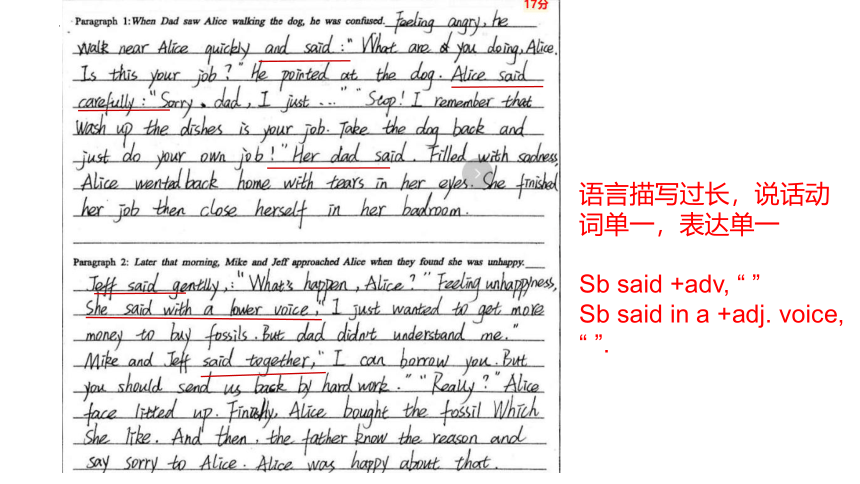 17分
Paragraph 1: When Dad saw Alice walking the dog, he was confused. Feeling angry, he
walk near Alice quickly and said:" What are you doing, Alice.
Is this your job?" He pointed at the dog. Alice said
carefully:"Sorry, dad, I just ..." "Stop! I remember that
wash up the dishes is your job. Take the dog back and
just do your own job!" Her dad said. Filled with sadness,
Alice wented back home with tears in her eyes. She finished
her job then close herself in her badroom.
Paragraph 2: Later that morning, Mike and Jeff approached Alice when they found she was unhappy.
Jeff said gentlly,:"What's happen, Alice?" Feeling unhappyness,
She said with a lower voice," I just wanted to get more
money to buy fossils. But dad didn't understand me."
Mike and Jeff said together," I can borrow you. But
you should send us back by hard work." "Really?" Alice
face litted up. Finially, Alice bought the fossil Which
She like. And then, the father know the reason and
say sorry to Alice. Alice was happy aboutt that.
语言描写过长，说话动
词单一，表达单一
Sb said +adv, “ ”
Sb said in a +adj. voice,
“ ”.